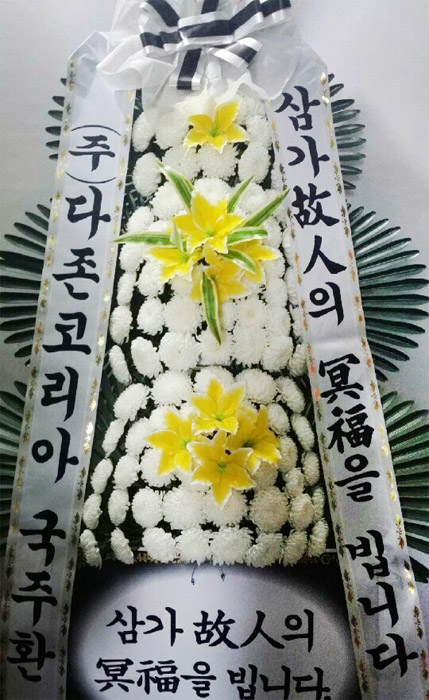 (주)다존코리아 국주환
삼가 故人의 冥福을 빕니다
삼가 故人의
冥福을 빕니다